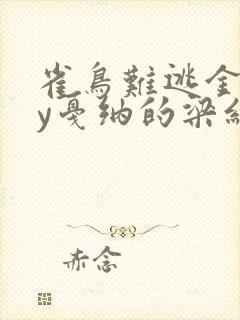 雀鳥難逃金
y戛纳的梁
赤念